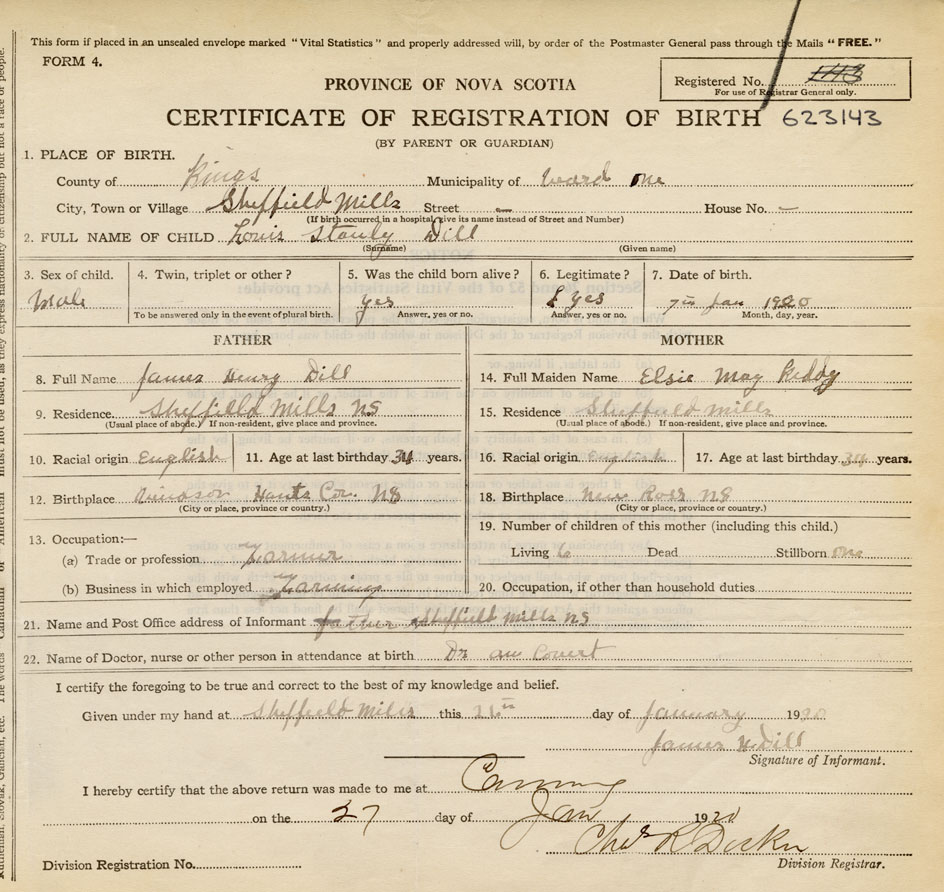 This form if placed in an unsealed envelope marked "Vital Statistics" and properly addressed will, by order of the Postmaster General pass through the Mails "FREE."
FORM 4.
Registered No.
For use of Registrar General only.
PROVINCE OF NOVA SCOTIA
CERTIFICATE OF REGISTRATION OF BIRTH 623143
(BY PARENT OR GUARDIAN)
1. PLACE OF BIRTH.
County of Kings Municipality of Ward One
City, Town or Village Sheffield Mills Street — House No. —
(If birth occurred in a hospital give its name instead of Street and Number)
2. FULL NAME OF CHILD Louis Stanly Dill
(Surname) (Given name)
3. Sex of child. 4. Twin, triplet or other? 5. Was the child born alive? 6. Legitimate? 7. Date of birth.
Male yes Yes 7th Jan 1920
To be answered only in the event of plural birth. Answer, yes or no. Answer, yes or no. Month, day, year.
FATHER MOTHER
8. Full Name James Henry Dill 14. Full Maiden Name Elsie May Keddy
9. Residence. Sheffield Mills NS 15. Residence Sheffield Mills
(Usual place of abode.) If non-resident, give place and province. (Usual place of abode.) If non-resident, give place and province.
10. Racial origin English 11. Age at last birthday years. 16. Racial origin English 17. Age at last birthday 34 years.
12. Birthplace Windsor Hants Co. NS 18. Birthplace New Ross NS
(City or place, province or country.) (City or place, province or country.)
19. Number of children of this mother (including this child.)
13. Occupation:—
(a) Trade or profession Farmer Living 6 Dead Stillborn one
(b) Business in which employed Farming 20. Occupation, if other than household duties
21. Name and Post Office address of Informant father Sheffield Mills NS
22. Name of Doctor, nurse or other person in attendance at birth Dr
I certify the foregoing to be true and correct to the best of my knowledge and belief.
Given under my hand at Sheffield Mills this day of January 1920
James H Dill
Signature of Informant.
I hereby certify that the above return was made to me at Canning
on the 27 day of Jan 1920
Chas R
Division Registration No. Division Registrar.